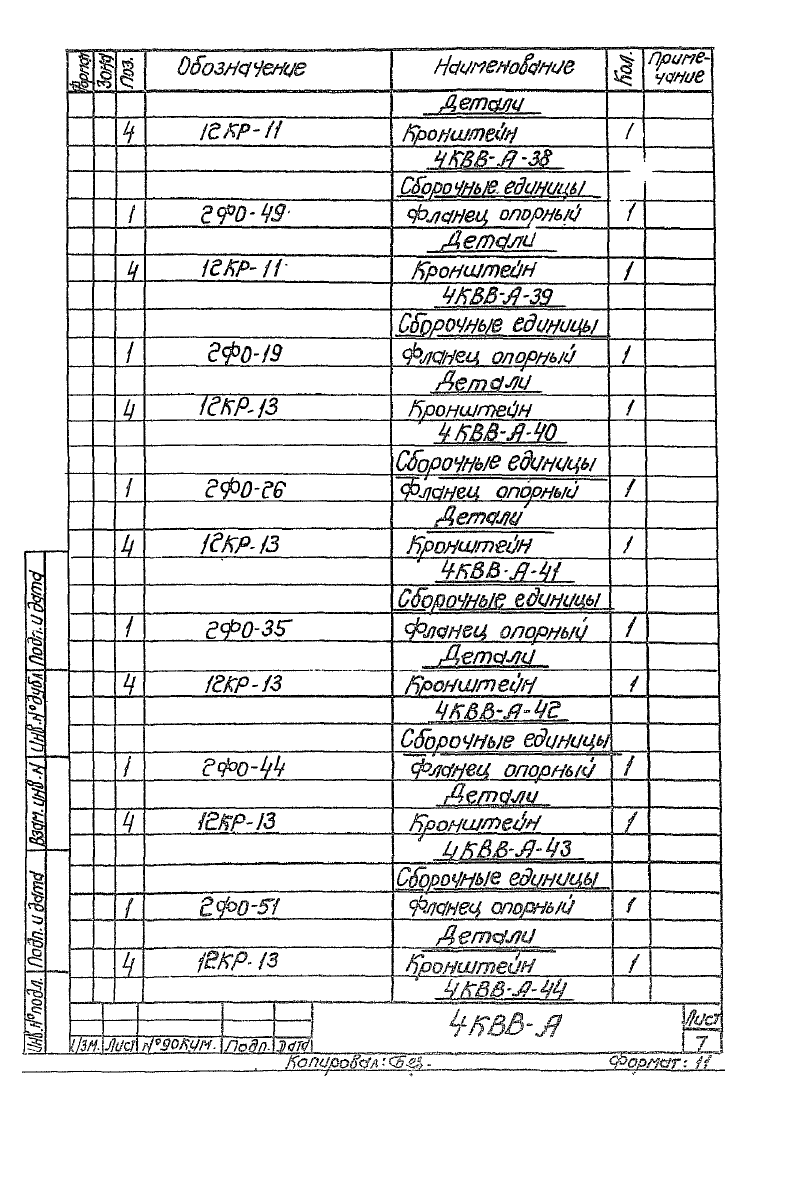 Формат Зона Поз. Обозначение Наименование Кол. Приме-
чание
Детали
4 12КР-11 Кронштейн 1
4КВВ-А-38
Сборочные единицы
1 2ФО-49 Фланец опорный 1
Детали
4 12КР-11 Кронштейн 1
4КВВ-А-39
Сборочные единицы
1 2ФО-19 Фланец опорный 1
Детали
4 12КР-13 Кронштейн 1
4КВВ-А-40
Сборочные единицы
1 2ФО-26 Фланец опорный 1
Детали
4 12КР-13 Кронштейн 1
4КВВ-А-41
Сборочные единицы
1 2ФО-35 Фланец опорный 1
Детали
4 12КР-13 Кронштейн 1
4КВВ-А-42
Сборочные единицы
1 2ФО-44 Фланец опорный 1
Детали
4 12КР-13 Кронштейн 1
4КВВ-А-43
Сборочные единицы
1 2ФО-51 Фланец опорный 1
Детали
4 12КР-13 Кронштейн 1
4КВВ-А-44
Инв.№подл. Подп. и дата Взам. инв. № Инв.№дубл Подп. и дата
Изм. Лист №докум. Подп. Дата
4КВВ-А
Лист
7
Копировал: Формат: 11